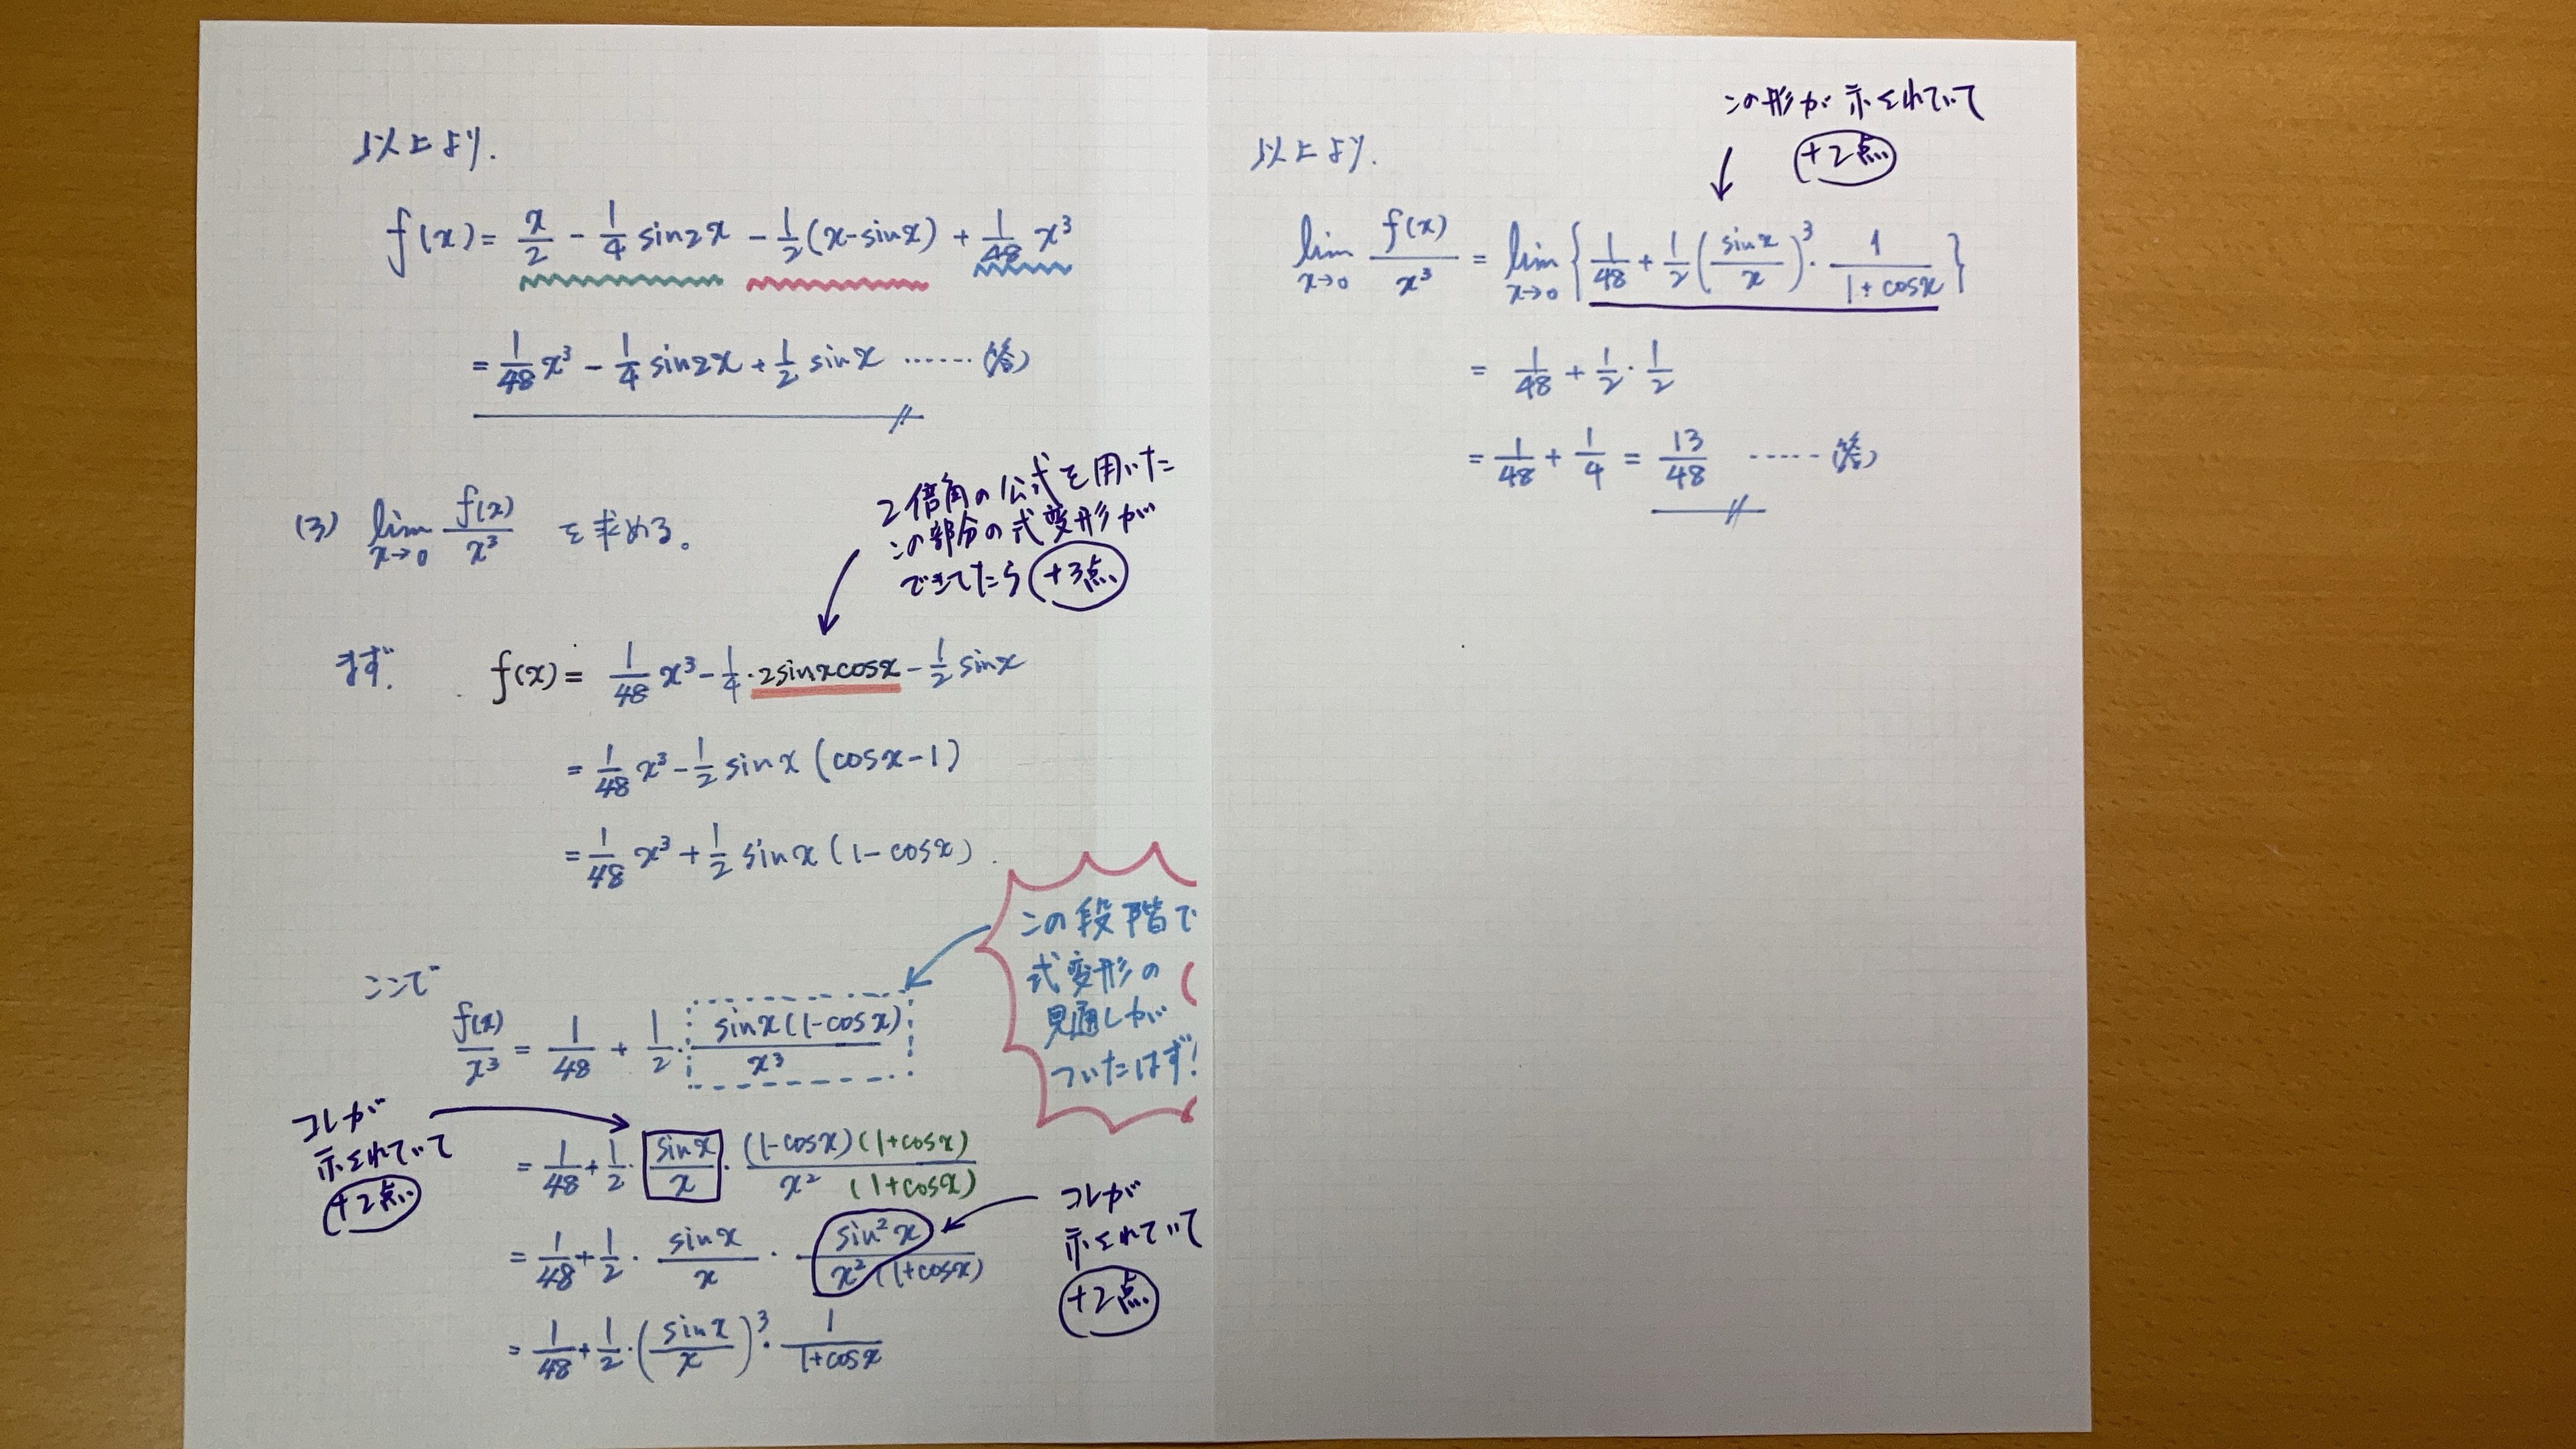 以上より.
f(x) = x/2 - 1/4 sin2x - 1/2(x-sinx) + 1/48 x³
= 1/48 x³ - 1/4 sin2x + 1/2 sinx ……(答)
(3) lim x→0 f(x)/x³ を求める。
2倍角の公式を用いた
この部分の式変形が
できてたら +3点
まず. f(x) = 1/48 x³ - 1/4・2sinxcosx - 1/2 sinx
= 1/48 x³ - 1/2 sinx (cosx-1)
= 1/48 x³ + 1/2 sinx (1-cosx).
この段階で
式変形の
見通しが
ついたはず!
ここで
f(x)/x³ = 1/48 + 1/2・sinx(1-cosx)/x³
コレが
示されていて
+2点
= 1/48 + 1/2・sinx/x・(1-cosx)(1+cosx)/x²(1+cosx)
= 1/48 + 1/2・sinx/x・sin²x/x²(1+cosx)
コレが
示されていて
+2点
= 1/48 + 1/2・(sinx/x)³・1/1+cosx
この形が示されていて
+2点
以上より.
lim x→0 f(x)/x³ = lim x→0 {1/48 + 1/2(sinx/x)³・1/1+cosx}
= 1/48 + 1/2・1/2
= 1/48 + 1/4 = 13/48 ……(答)